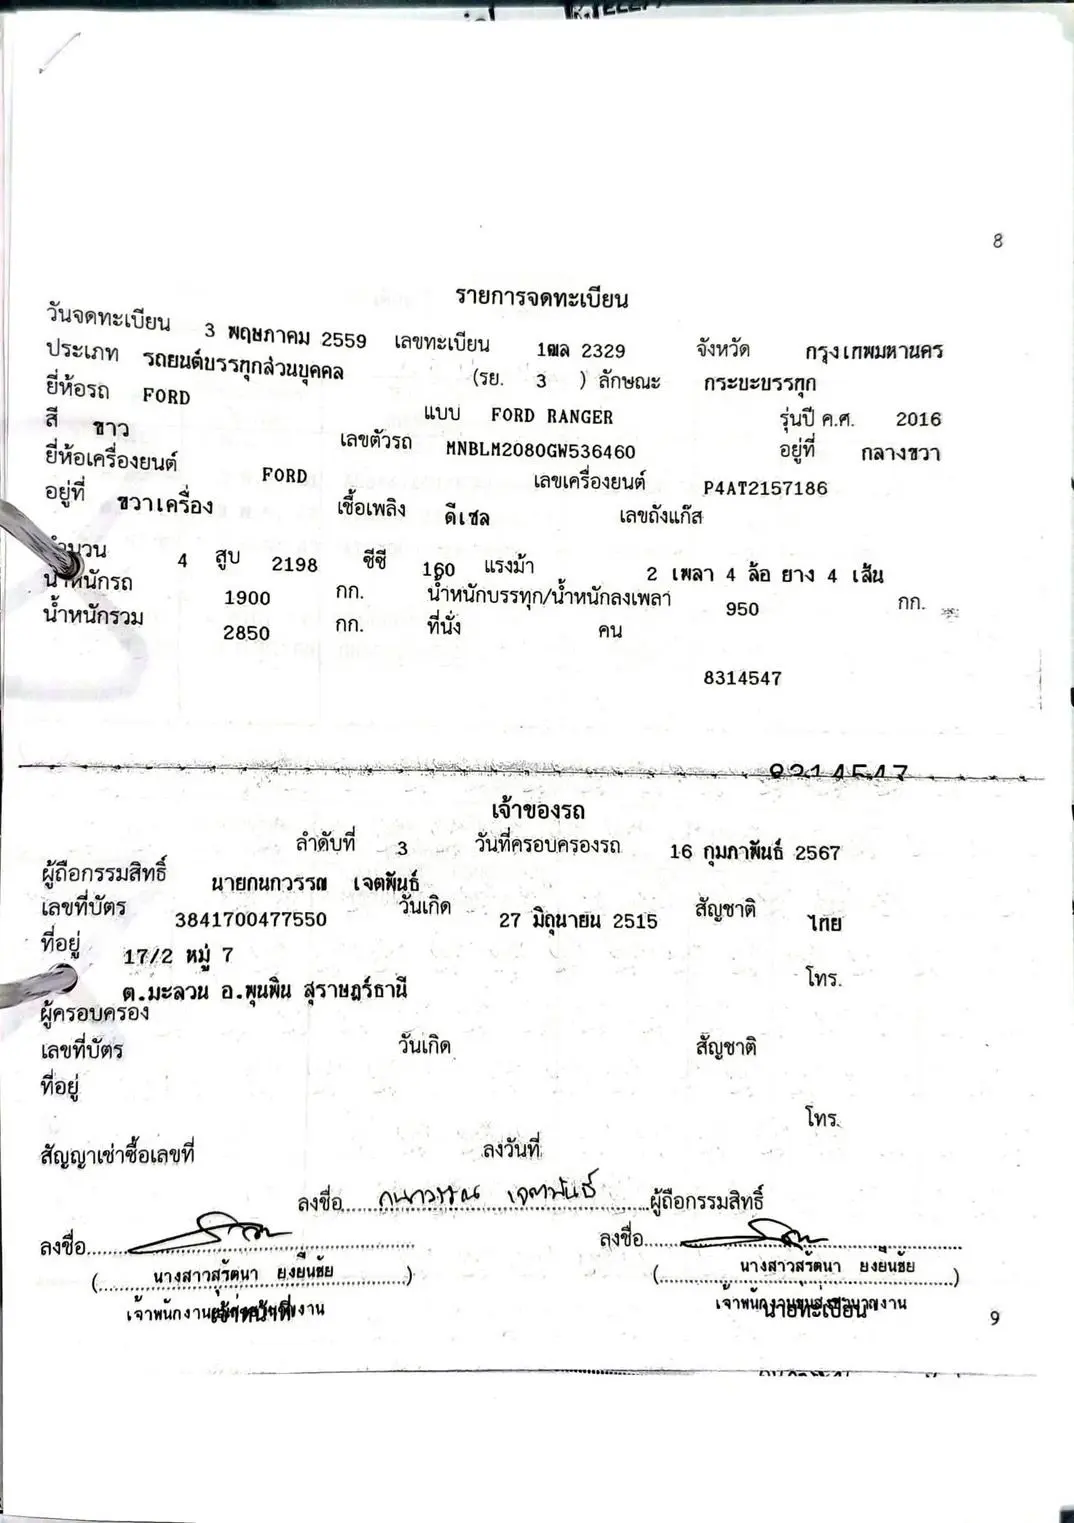 8
รายการจดทะเบียน
วันจดทะเบียน 3 พฤษภาคม 2559 เลขทะเบียน 1ฒล 2329 จังหวัด กรุงเทพมหานคร
ประเภท รถยนต์บรรทุกส่วนบุคคล (รย. 3 ) ลักษณะ กระบะบรรทุก
ยี่ห้อรถ FORD แบบ FORD RANGER รุ่นปี ค.ศ. 2016
สี ขาว เลขตัวรถ MNBLM2080GW536460 อยู่ที่ กลางขวา
ยี่ห้อเครื่องยนต์ FORD เลขเครื่องยนต์ P4AT2157186
อยู่ที่ ขวาเครื่อง เชื้อเพลิง ดีเซล เลขถังแก๊ส
จำนวน 4 สูบ 2198 ซีซี 160 แรงม้า 2 เพลา 4 ล้อ ยาง 4 เส้น
น้ำหนักรถ 1900 กก. น้ำหนักบรรทุก/น้ำหนักลงเพลา 950 กก.
น้ำหนักรวม 2850 กก. ที่นั่ง คน
8314547
8314547
เจ้าของรถ
ลำดับที่ 3 วันที่ครอบครองรถ 16 กุมภาพันธ์ 2567
ผู้ถือกรรมสิทธิ์ นายกนกวรรณ เจตพันธ์
เลขที่บัตร 3841700477550 วันเกิด 27 มิถุนายน 2515 สัญชาติ ไทย
ที่อยู่ 17/2 หมู่ 7
ต.มะลวน อ.พุนพิน สุราษฎร์ธานี โทร.
ผู้ครอบครอง
เลขที่บัตร วันเกิด สัญชาติ
ที่อยู่
โทร.
สัญญาเช่าซื้อเลขที่ ลงวันที่
ลงชื่อ กนกวรรณ เจตพันธ์ ผู้ถือกรรมสิทธิ์
ลงชื่อ ลงชื่อ
(นางสาวสุรัตนา ยงยืนชัย) (นางสาวสุรัตนา ยงยืนชัย)
เจ้าหน้าที่ นายทะเบียน
9